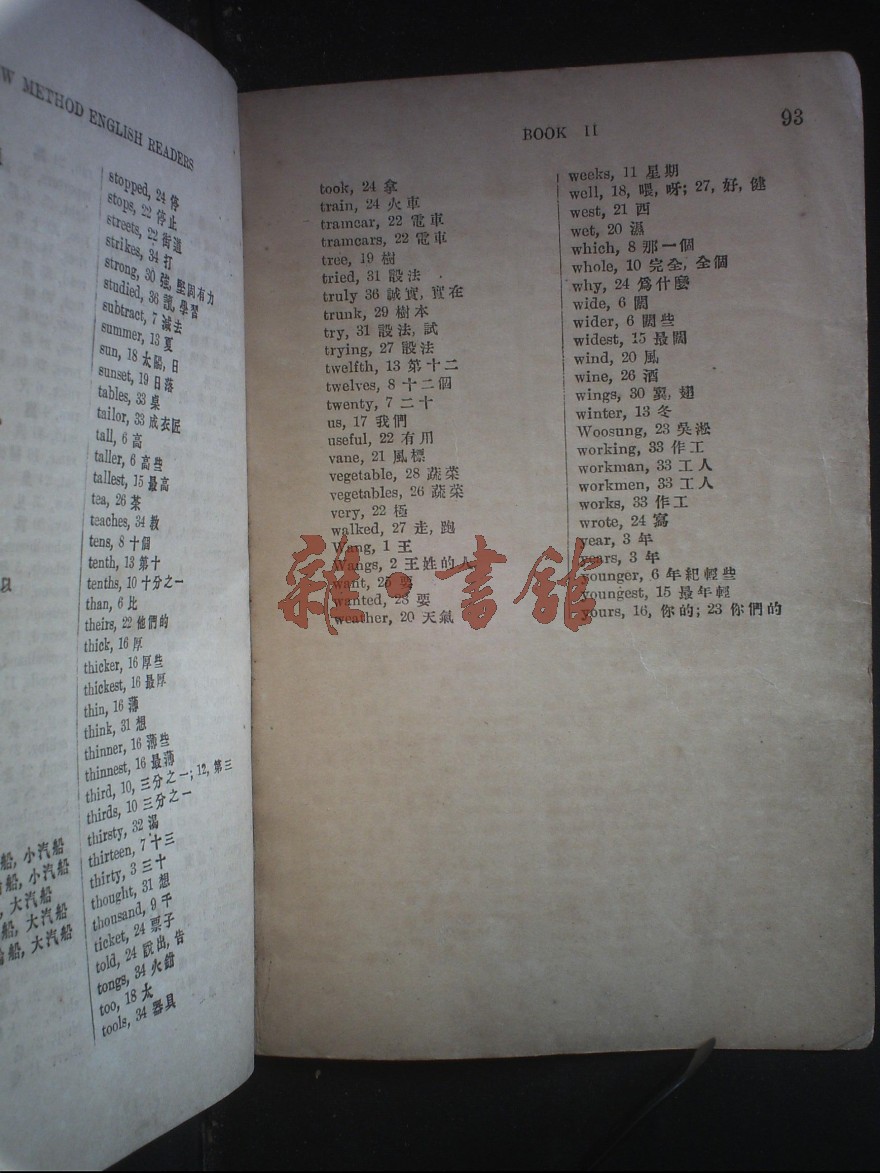 W METHOD ENGLISH READERS
stopped, 24 停
stops, 22 停止
streets, 22 街道
strikes, 34 打
strong, 30 強, 堅固有力
studied, 36 讀, 學習
subtract, 7 減去
summer, 13 夏
sun, 18 太陽, 日
sunset, 19 日落
tables, 33 桌
tailor, 33 成衣匠
tall, 6 高
taller, 6 高些
tallest, 15 最高
tea, 26 茶
teaches, 34 教
tens, 8 十個
tenth, 13 第十
tenths, 10 十分之一
than, 6 比
theirs, 22 他們的
thick, 16 厚
thicker, 16 厚些
thickest, 16 最厚
thin, 16 薄
think, 31 想
thinner, 16 薄些
thinnest, 16 最薄
third, 10, 三分之一; 12, 第三
thirds, 10 三分之一
thirsty, 32 渴
thirteen, 7 十三
thirty, 3 三十
thought, 31 想
thousand, 9 千
ticket, 24 票子
told, 24 說出, 告
tongs, 34 火鉗
too, 18 太
tools, 34 器具
船, 小汽船
船, 小汽船
, 大汽船
船, 大汽船
船, 大汽船
BOOK II
93
took, 24 拿
train, 24 火車
tramcar, 22 電車
tramcars, 22 電車
tree, 19 樹
tried, 31 設法
truly 36 誠實, 實在
trunk, 29 樹本
try, 31 設法, 試
trying, 27 設法
twelfth, 13 第十二
twelves, 8 十二個
twenty, 7 二十
us, 17 我們
useful, 22 有用
vane, 21 風標
vegetable, 28 蔬菜
vegetables, 26 蔬菜
very, 22 極
walked, 27 走, 跑
Wang, 1 王
Wangs, 2 王姓的人
want, 25 要
wanted, 28 要
weather, 20 天氣
weeks, 11 星期
well, 18, 喂, 呀; 27, 好, 健
west, 21 西
wet, 20 濕
which, 8 那一個
whole, 10 完全, 全個
why, 24 爲什麼
wide, 6 闊
wider, 6 闊些
widest, 15 最闊
wind, 20 風
wine, 26 酒
wings, 30 翼, 翅
winter, 13 冬
Woosung, 23 吳淞
working, 33 作工
workman, 33 工人
workmen, 33 工人
works, 33 作工
wrote, 24 寫
year, 3 年
years, 3 年
younger, 6 年紀輕些
youngest, 15 最年輕
yours, 16, 你的; 23 你們的
雜·書館